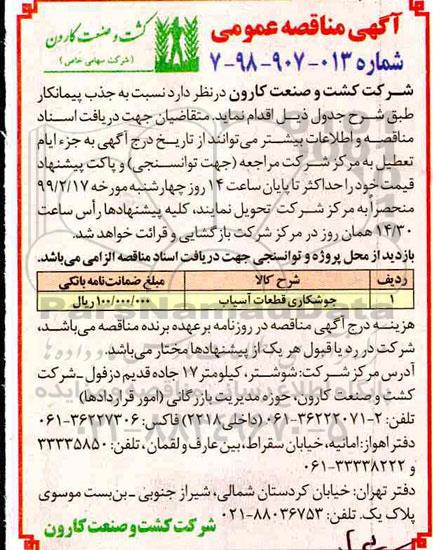 آگهی مناقصه عمومی
کشت و صنعت کارون
(شرکت سهامی خاص)
شماره ۰۱۳-۹۰۷-۹۸-۷
شرکت کشت و صنعت کارون در نظر دارد نسبت به جذب پیمانکار
طبق شرح جدول ذیل اقدام نماید. متقاضیان جهت دریافت اسناد
مناقصه و اطلاعات بیشتر می‌توانند از تاریخ درج آگهی به جزء ایام
تعطیل به مرکز شرکت مراجعه (جهت توانسنجی) و پاکت پیشنهاد
قیمت خود را حداکثر تا پایان ساعت ۱۴ روز چهارشنبه مورخه ۹۹/۲/۱۷
منحصراً به مرکز شرکت تحویل نمایند، کلیه پیشنهادها رأس ساعت
۱۴/۳۰ همان روز در مرکز شرکت بازگشایی و قرائت خواهد شد.
بازدید از محل پروژه و توانسنجی جهت دریافت اسناد مناقصه الزامی می‌باشد.
ردیف شرح کالا مبلغ ضمانت‌نامه بانکی
۱ جوشکاری قطعات آسیاب ۱۰۰/۰۰۰/۰۰۰ ریال
ParsNamadData
هزینه درج آگهی مناقصه در روزنامه بر عهده برنده مناقصه می‌باشد،
شرکت در رد یا قبول هر یک از پیشنهادها مختار می‌باشد.
آدرس مرکز شرکت: شوشتر، کیلومتر ۱۷ جاده قدیم دزفول ـ شرکت
کشت و صنعت کارون، حوزه مدیریت بازرگانی (امور قراردادها)
تلفن: ۲-۳۶۲۲۲۰۷۱-۰۶۱ (داخلی ۲۲۱۸) فاکس: ۳۶۲۲۷۳۰۶-۰۶۱
دفتر اهواز: امانیه، خیابان سقراط، بین عارف و لقمان، تلفن: ۳۳۳۳۵۸۵۰
و ۳۳۳۳۸۲۲۲-۰۶۱
دفتر تهران: خیابان کردستان شمالی، شیراز جنوبی ـ بن‌بست موسوی
پلاک یک. تلفن: ۸۸۰۳۶۷۵۳-۰۲۱
شرکت کشت و صنعت کارون